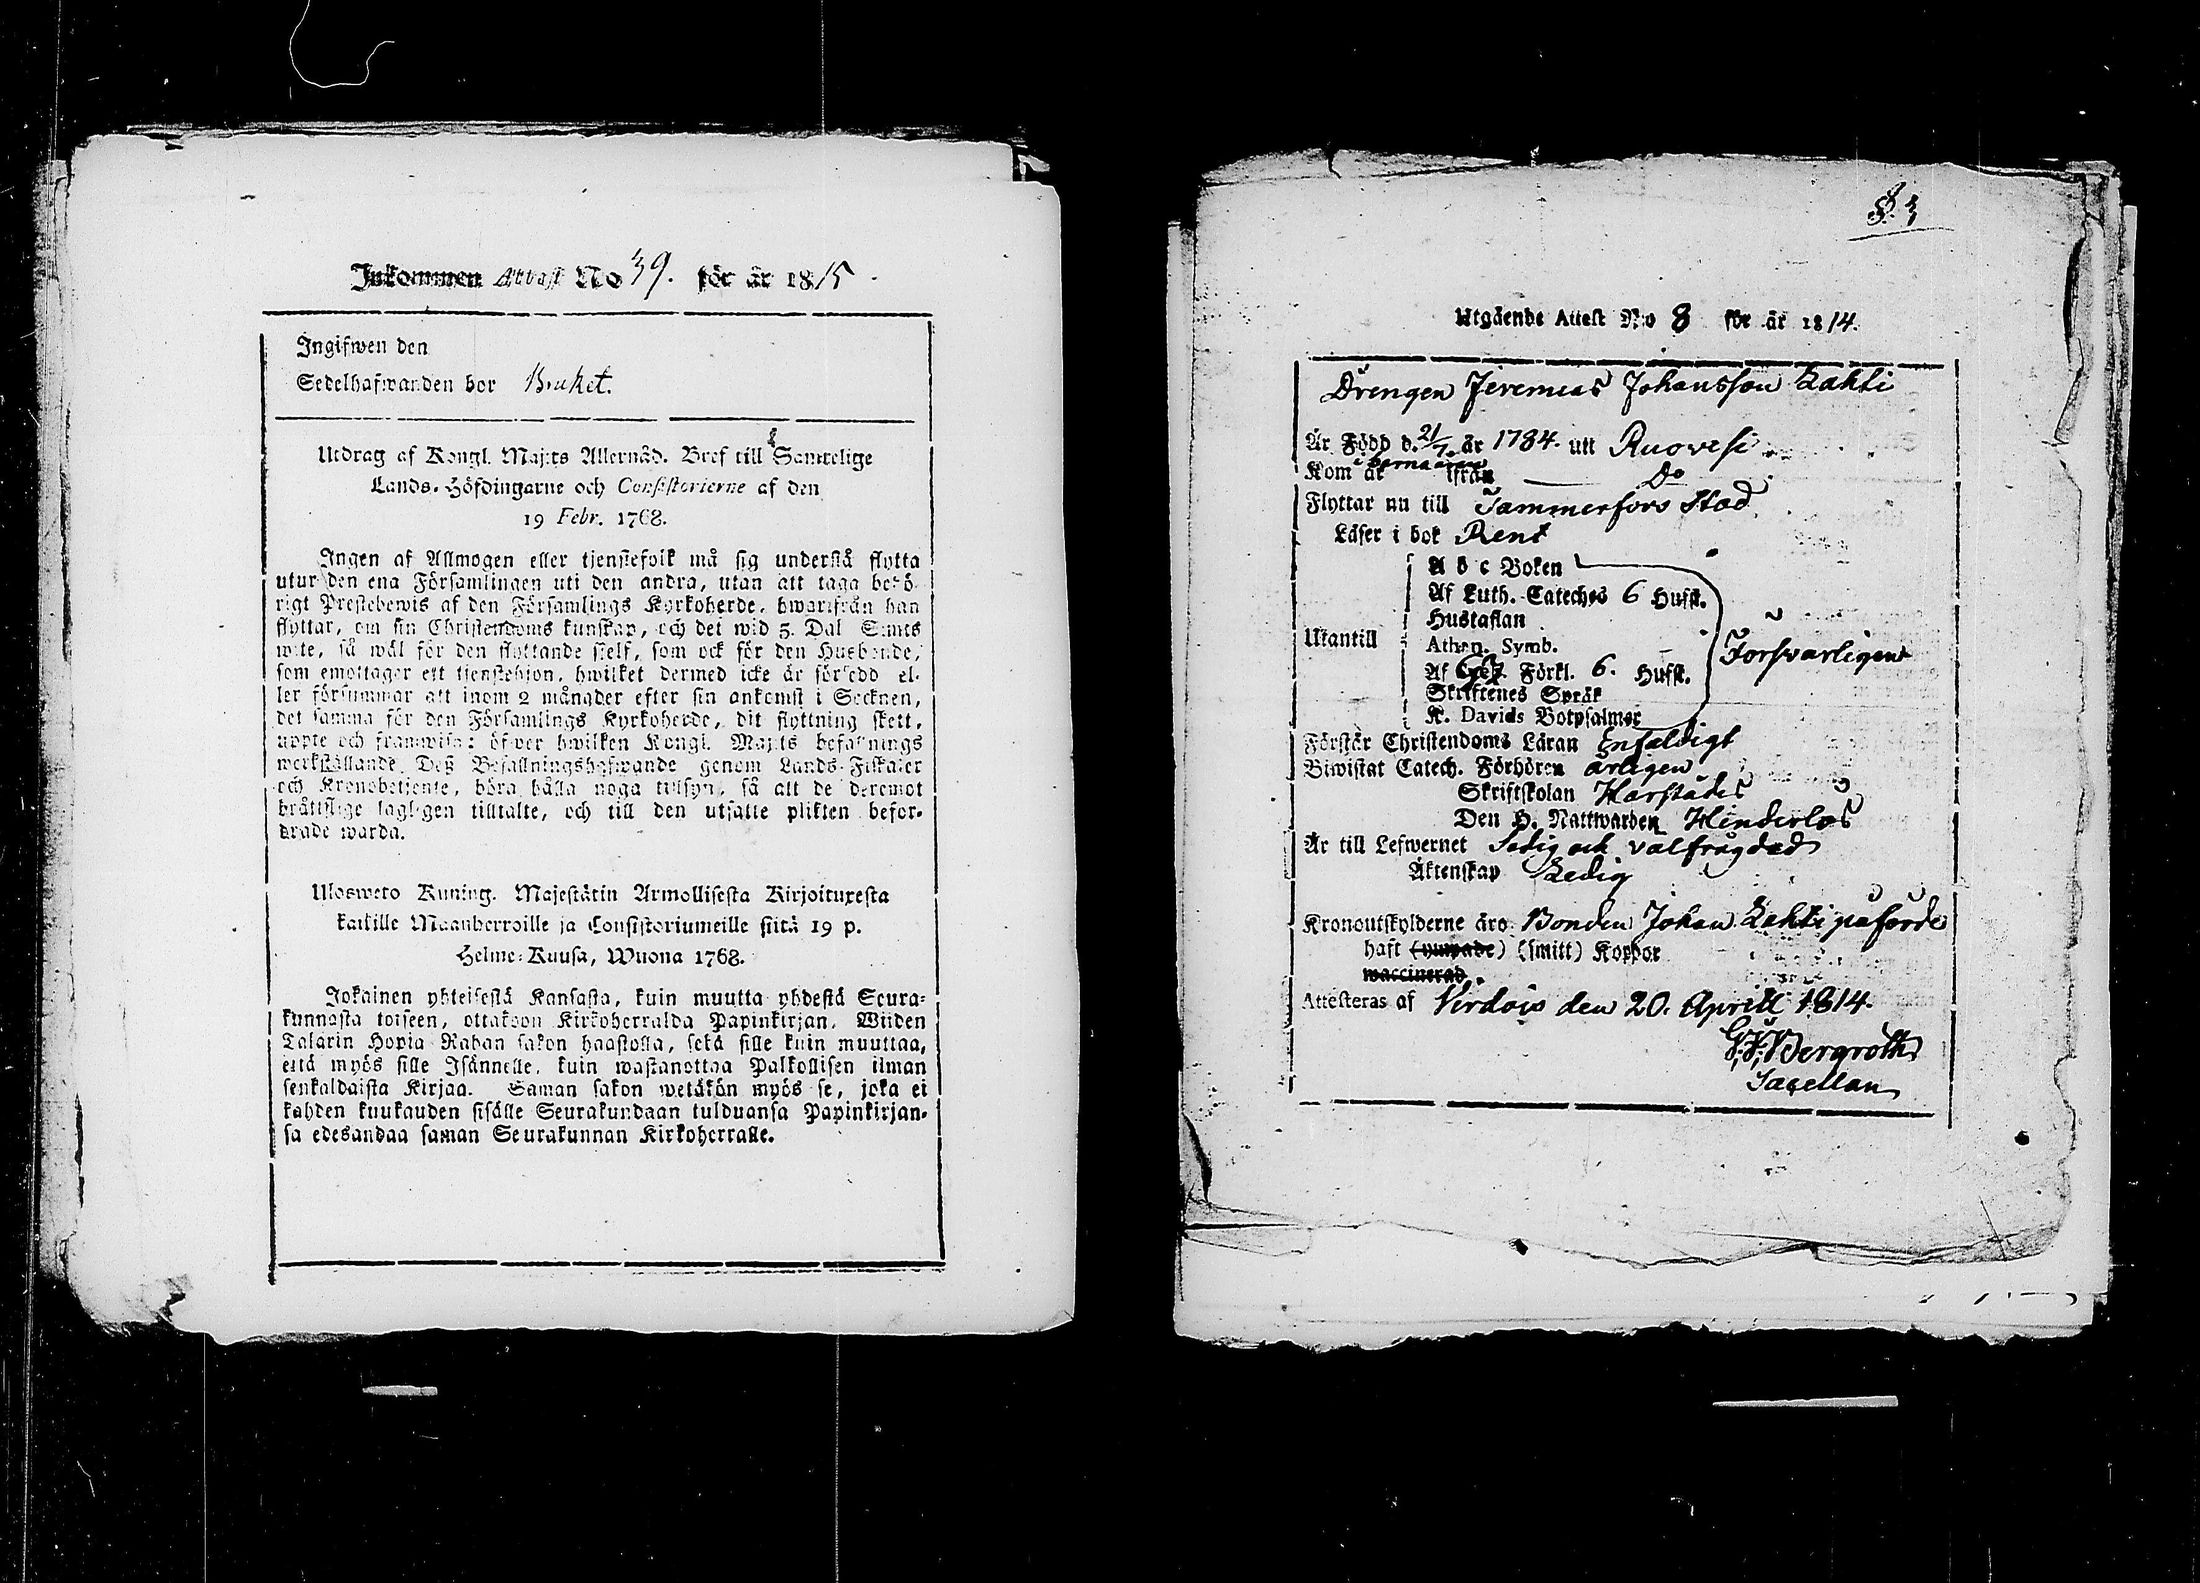 Inkommen Attest No 39. för år 1815.
Ingifwen den
Sedelhafwanden bor Bruket.
Utdrag af Kongl. Maj:ts Allernåd. Bref till Samtelige
Lands-Höfdingarne och Consistorierne af den
19 Febr. 1768.
Ingen af Allmogen eller tjenstefolk må sig understå flytta
utur den ena Församlingen uti den andra, utan att taga behö-
rigt Prestebewis af den Församlings Kyrkoherde, hwarifrån han
flyttar, om sin Christendoms kunskap, och det wid 5. Dal. S:mts
wite, så wäl för den flyttande sielf, som ock för den Husbonde,
som emottager ett tjenstehjon, hwilket dermed icke är försedd el-
ler försummar att inom 2 månader efter sin ankomst i Socknen,
det samma för den Församlings Kyrkoherde, dit flyttning skett,
uppte och framwisa: öfwer hwilken Kongl. Maj:ts befallnings
werkställande Deß Befallningshafwande genom Lands-Fiskaler
och Kronobetjente, böra hålla noga tillsyn, så att de deremot
bråttslige lagligen tilltalte, och till den utsatte plikten befor-
drade warda.
Ulosweto Kuning. Majestätin Armollisesta Kirjoituxesta
kaikille Maanherroille ja Consistoriumeille siitä 19 p.
Helme-Kuusa, Wuona 1768.
Jokainen yhteisestä Kansasta, kuin muutta yhdestä Seura-
kunnasta toiseen, ottakoon Kirkoherralda Papinkirjan, Wiiden
Talarin Hopia Rahan sakon haastolla, sekä sille kuin muuttaa,
että myös sille Isännelle, kuin wastanottaa Palkollisen ilman
senkaldaista Kirjaa. Saman sakon wetäkön myös se, joka ei
kahden kuukauden sisälle Seurakundaan tulduansa Papinkirjan-
sa edesandaa saman Seurakunnan Kirkoherralle.
Utgående Attest No 8 för år 1814.
Drengen Jeremias Johansson Lahti
Är Född d. 21/7. år 1784. utt Ruovesi
Kom år barnaåren ifrån Do
Flyttar nu till Tammerfors Stad
Läser i bok Rent
A b c Boken
Af Luth. Cateches 6 Hufst.
Hustaflan
Utantill Athan. Symb. Försvarligen
Af Förkl. 6. Hufst.
Skriftenes Språk
K. Davids Botpsalmer
Förstår Christendoms Läran Enfaldigt
Biwistat Catech. Förhören årligen
Skriftskolan Harstädes
Den H. Nattwarden Hinderlös
Är till Lefwernet Sedig och välfrägdad
Äktenskap Ledig
Kronoutskylderne äro Bonden Johan Lahti påförde
haft (ympade) (smitt) Koppor
waccinerad.
Attesteras af Virdois den 20. Aprill 1814.
G. F. Bergroth
Sacellan